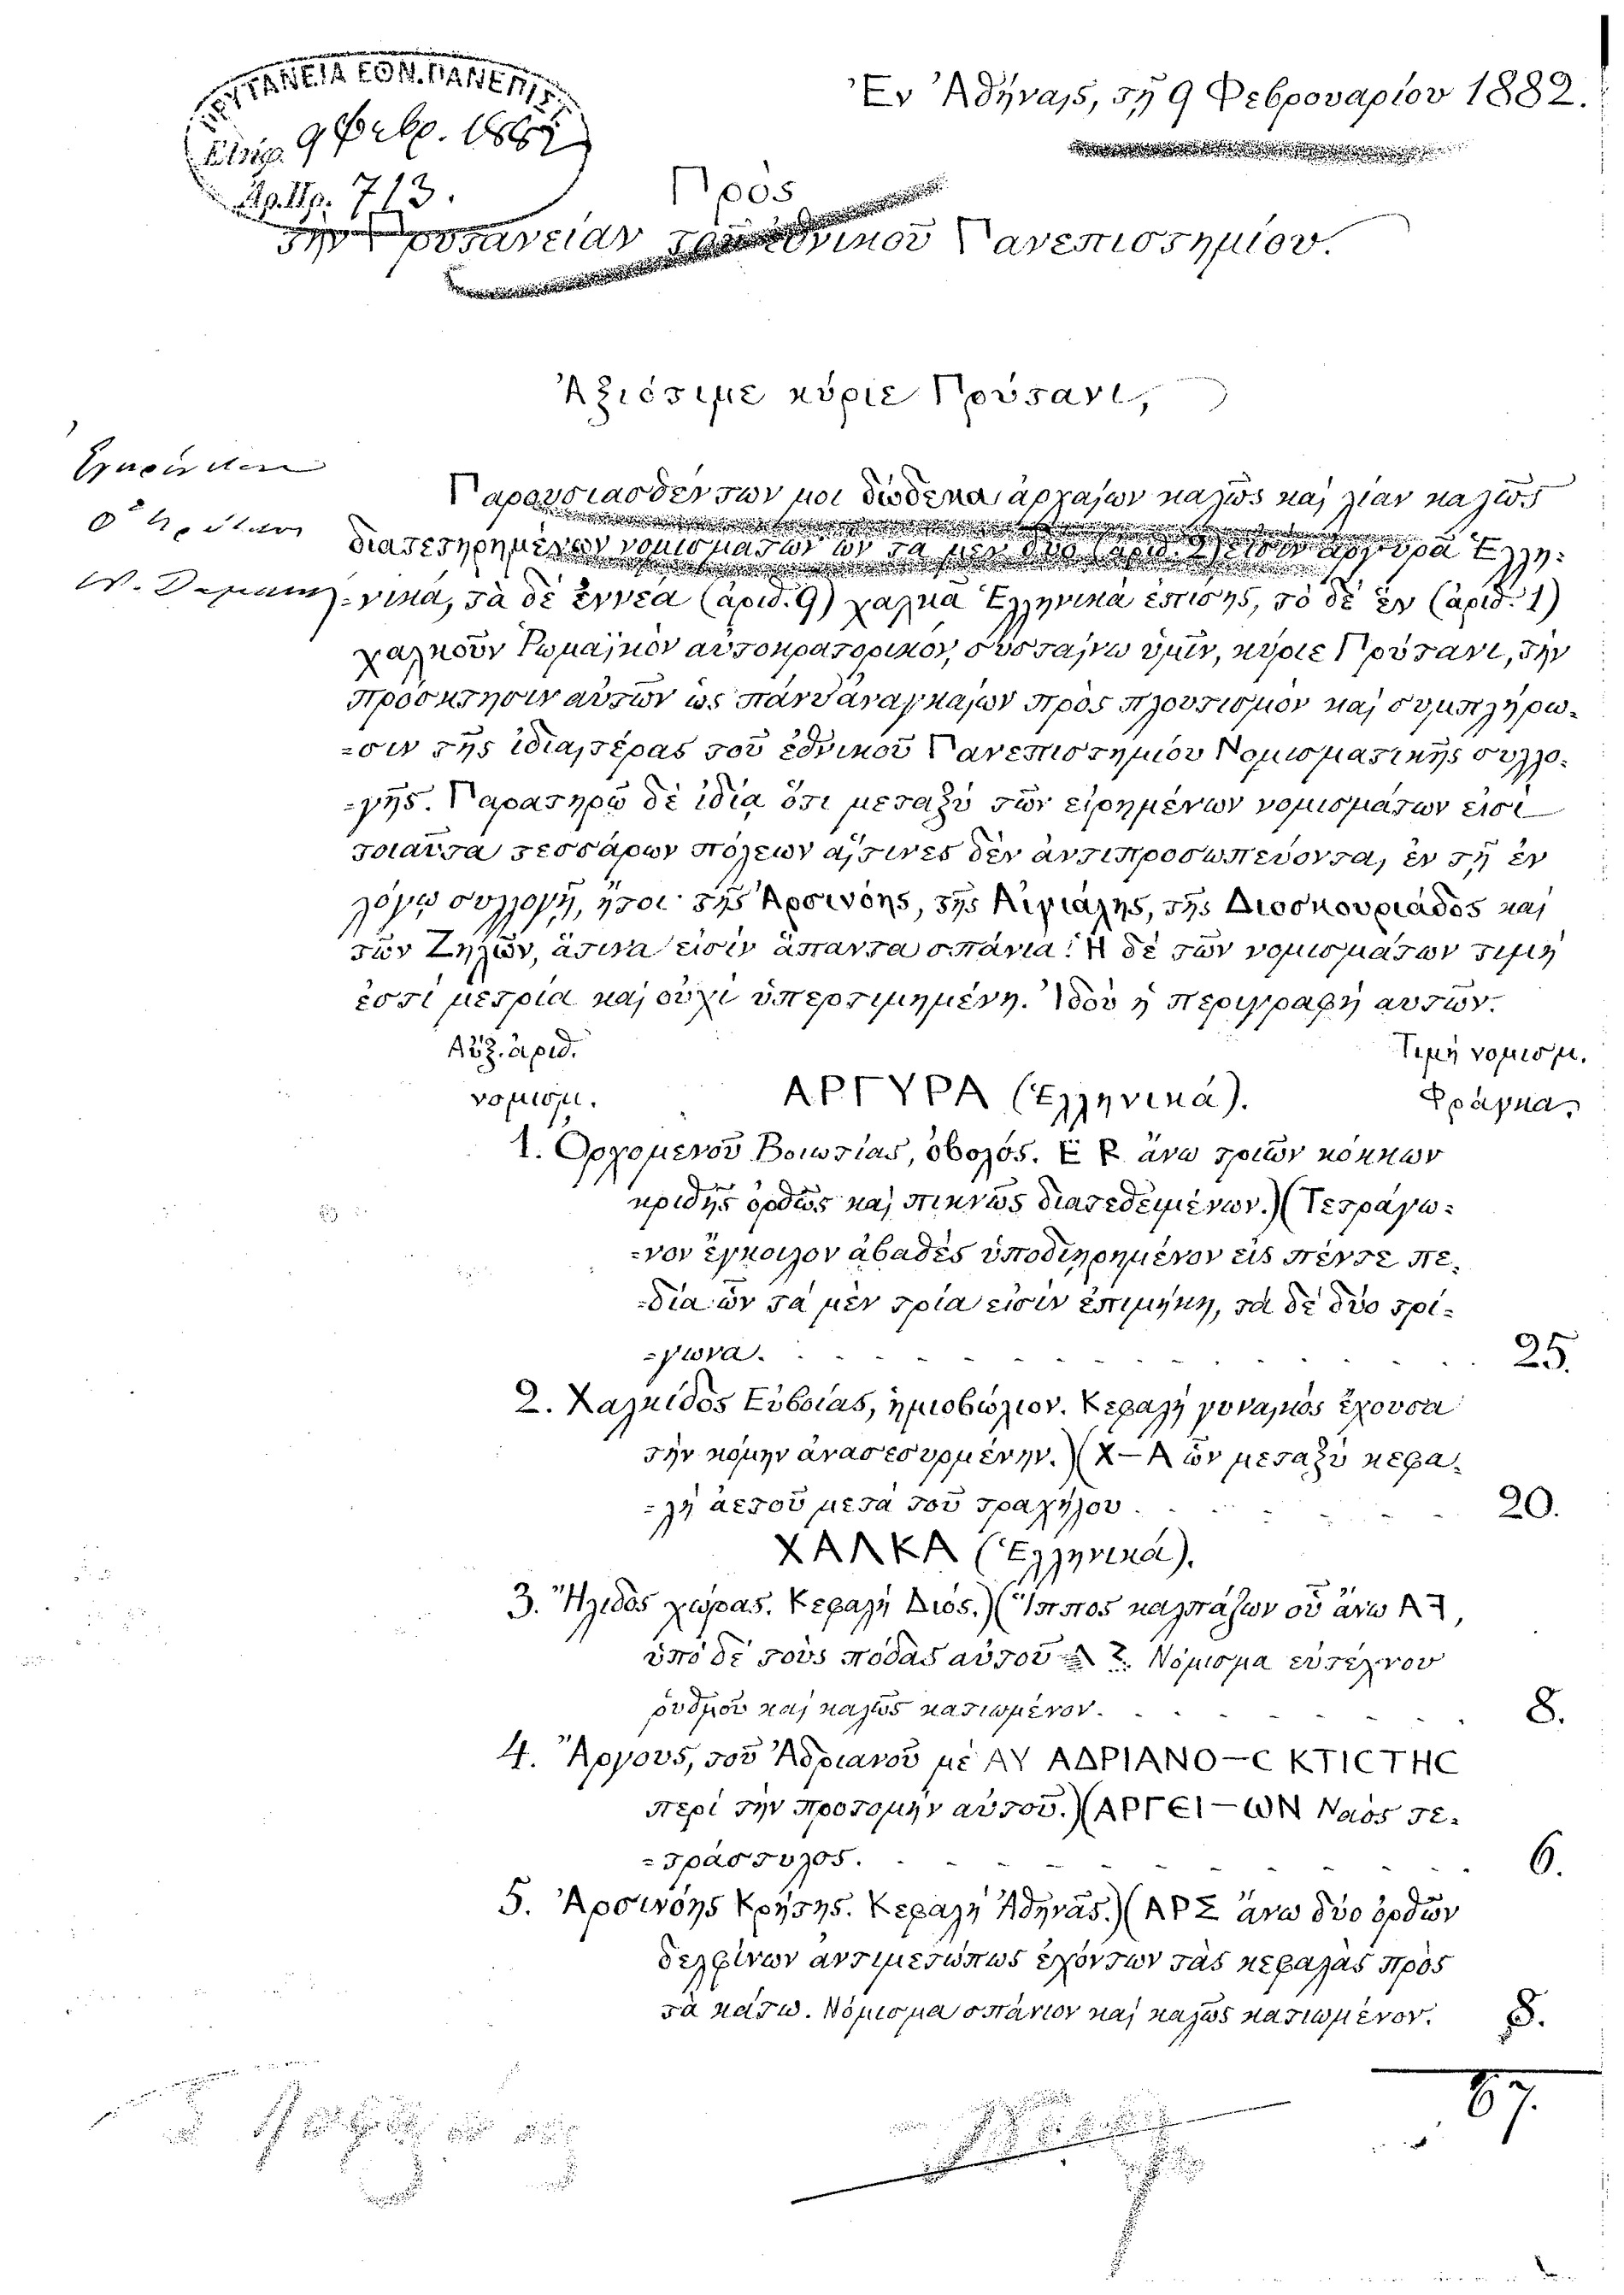 ΠΡΥΤΑΝΕΙΑ ΕΘΝ. ΠΑΝΕΠΙΣΤ.
9 Φεβρ. 1882
Ἀρ. Πρ. 713.
Ἐν Ἀθήναις, τῇ 9 Φεβρουαρίου 1882.
Πρὸς
τὴν Πρυτανείαν τοῦ ἐθνικοῦ Πανεπιστημίου.
Ἀξιότιμε κύριε Πρύτανι,
Ἐγκρίνεται
ὁ Πρύτανις
Παρουσιασθέντων μοι δώδεκα ἀρχαίων καλῶς καὶ λίαν καλῶς
διατετηρημένων νομισμάτων ὧν τὰ μὲν δύο (ἀριθ. 2) εἰσὶν ἀργυρᾶ Ἑλλη-
-νικά, τὰ δὲ ἐννέα (ἀριθ. 9) χαλκᾶ Ἑλληνικὰ ἐπίσης, τὸ δὲ ἓν (ἀριθ. 1)
χαλκοῦν Ῥωμαϊκὸν αὐτοκρατορικόν, συσταίνω ὑμῖν, κύριε Πρύτανι, τὴν
πρόσκτησιν αὐτῶν ὡς πάνυ ἀναγκαίων πρὸς πλουτισμὸν καὶ συμπλήρω-
-σιν τῆς ἰδιαιτέρας τοῦ ἐθνικοῦ Πανεπιστημίου Νομισματικῆς συλλο-
-γῆς. Παρατηρῶ δὲ ἰδίᾳ ὅτι μεταξὺ τῶν εἰρημένων νομισμάτων εἰσὶ
τοιαῦτα τεσσάρων πόλεων αἵτινες δὲν ἀντιπροσωπεύονται ἐν τῇ ἐν
λόγῳ συλλογῇ, ἤτοι τῆς Ἀρσινόης, τῆς Αἰγιάλης, τῆς Διοσκουριάδος καὶ
τῶν Ζήλων, ἅτινα εἰσὶν ἅπαντα σπάνια. Ἡ δὲ τῶν νομισμάτων τιμὴ
ἐστὶ μετρία καὶ οὐχὶ ὑπερτιμημένη. Ἰδοὺ ἡ περιγραφὴ αὐτῶν.
Αὔξ. ἀριθ.
νομισμ.
Τιμὴ νομισμ.
Φράγκα.
ΑΡΓΥΡΑ (Ἑλληνικά).
1. Ὀρχομενοῦ Βοιωτίας, ὀβολός. Ε Ρ ἄνω τριῶν κόκκων
κριθῆς ὀρθῶς καὶ πυκνῶς διατεθειμένων.)(Τετράγω-
-νον ἔγκοιλον ἀβαθὲς ὑποδιῃρημένον εἰς πέντε πε-
-δία ὧν τὰ μὲν τρία εἰσὶν ἐπιμήκη, τὰ δὲ δύο τρί-
-γωνα. 25.
2. Χαλκίδος Εὐβοίας, ἡμιοβώλιον. Κεφαλὴ γυναικὸς ἔχουσα
τὴν κόμην ἀνασεσυρμένην.)(Χ—Α ὧν μεταξὺ κεφα-
-λὴ ἀετοῦ μετὰ τοῦ τραχήλου 20.
ΧΑΛΚΑ (Ἑλληνικά).
3. Ἤλιδος χώρας. Κεφαλὴ Διός.)(Ἵππος καλπάζων οὗ ἄνω
ὑπὸ δὲ τοὺς πόδας αὐτοῦ Νόμισμα εὐτέχνου
ῥυθμοῦ καὶ καλῶς κατιωμένον. 8.
4. Ἄργους, τοῦ Ἀδριανοῦ μὲ ΑΥ ΑΔΡΙΑΝΟ—С ΚΤΙСΤΗС
περὶ τὴν προτομὴν αὐτοῦ.)(ΑΡΓЄΙ—ωΝ Ναὸς τε-
-τράστυλος. 6.
5. Ἀρσινόης Κρήτης. Κεφαλὴ Ἀθηνᾶς.)(ΑΡΣ ἄνω δύο ὀρθῶν
δελφίνων ἀντιμετώπως ἐχόντων τὰς κεφαλὰς πρὸς
τὰ κάτω. Νόμισμα σπάνιον καὶ καλῶς κατιωμένον. 8.
67.